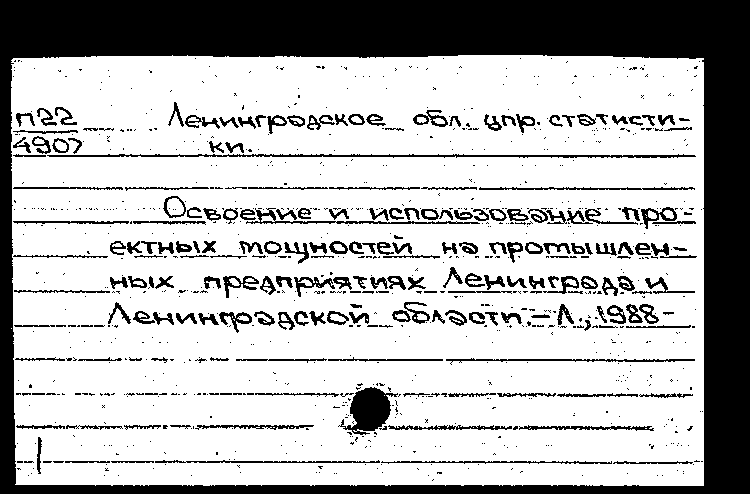 п22 Ленинградское обл. упр. статисти-
4907 ки.
Освоение и использование про-
ектных мощностей на промышлен-
ных предприятиях Ленинграда и
Ленинградской области. – Л., 1988 -